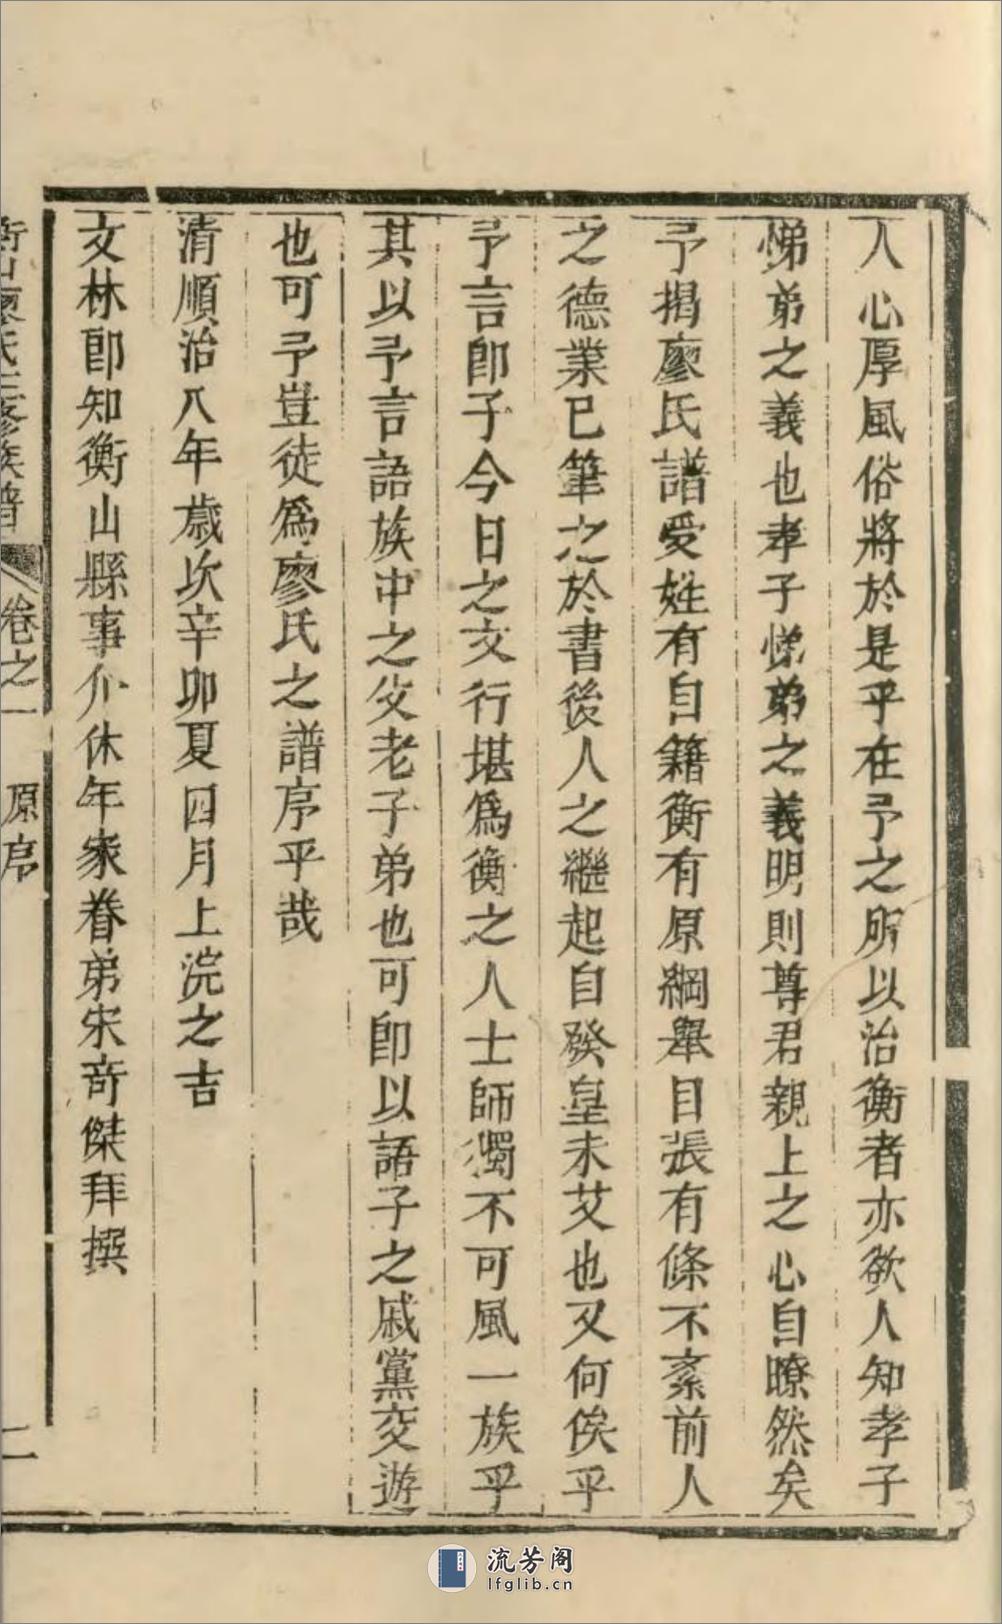 人心厚風俗將於是乎在予之所以治衡者亦欲人知孝子
悌弟之義也孝子悌弟之義明則尊君親上之心自瞭然矣
予揭廖氏譜受姓有自籍衡有原綱舉目張有條不紊前人
之德業已筆之於書後人之繼起自發皇未艾也又何俟乎
予言即子今日之文行堪為衡之人士師獨不可風一族乎
其以予言語族中之父老子弟也可即以語子之戚黨交遊
也可予豈徒為廖氏之譜序乎哉
清順治八年歲次辛卯夏四月上浣之吉
文林郎知衡山縣事介休年家眷弟宋奇傑拜撰
衡山廖氏五修族譜 卷之一 原序 二
流芳阁
lfglib.cn